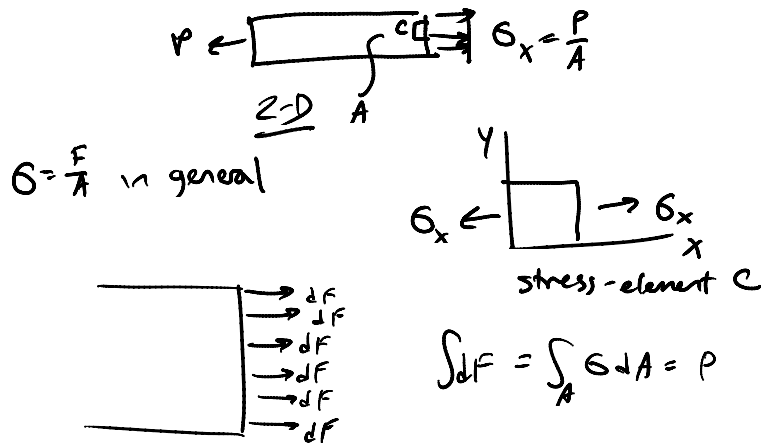 P
C
σx = P/A
2-D
A
σ = F/A in general
Y
σx
σx
X
stress-element C
dF
dF
dF
dF
dF
dF
∫dF = ∫_A σ dA = P